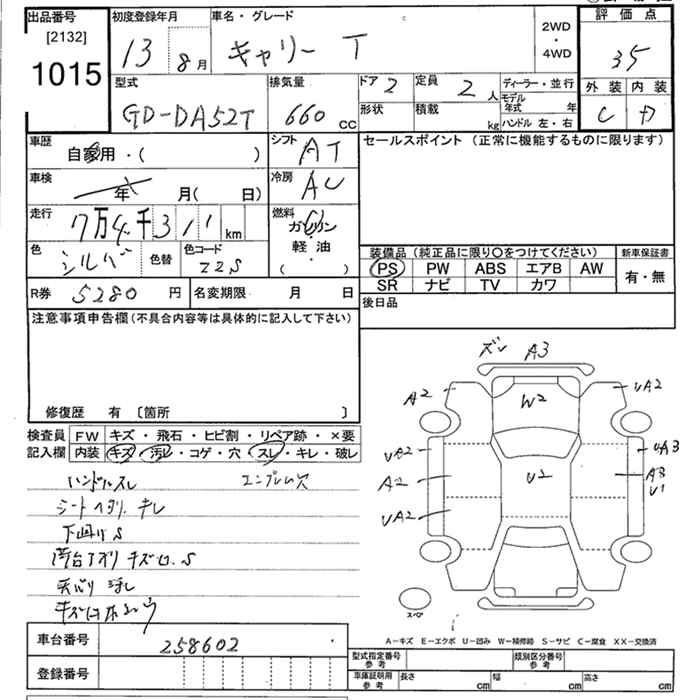 出品番号 初度登録年月 車名・グレード 2WD・4WD 評価点
[2132]
1015 13 8月 キャリー T 35
型式 排気量 ドア 2 定員 2人 ディーラー・並行 外装 内装
GD-DA52T 660cc 形状 積載 kg モデル年式 年 C D
ハンドル 左・右
車歴 自家用・( ) シフト AT セールスポイント (正常に機能するものに限ります)
車検 年 月(日) 冷房 AC
走行 7万4千311km 燃料 ガソリン
軽油
( )
色 シルバー 色替 色コード Z2S
装備品(純正品に限り〇をつけてください) 新車保証書
PS PW ABS エアB AW 有・無
SR ナビ TV カワ
R券 5280円 名変期限 月 日 後日品
注意事項申告欄(不具合内容等は具体的に記入して下さい)
修復歴 有 〔箇所 〕
検査員 FW キズ・飛石・ヒビ割・リペア跡・×要
記入欄 内装 キズ・汚レ・コゲ・穴・スレ・キレ・破レ
ハンドルスレ エンブレム穴
シートヘタリ.キレ
下回りS
荷台アオリ キズ凹.S
天バリ 浮し
ズレ A3
A2 W2 UA2
UA2 UA3
A2 U2 A3
U1
UA2
スペア
A-キズ E-エクボ U-凹み W-補修跡 S-サビ C-腐食 XX-交換済
車台番号 258602
登録番号
型式指定番号 参考 類別区分番号 参考
車庫証明用 参考 長さ cm 幅 cm 高さ cm